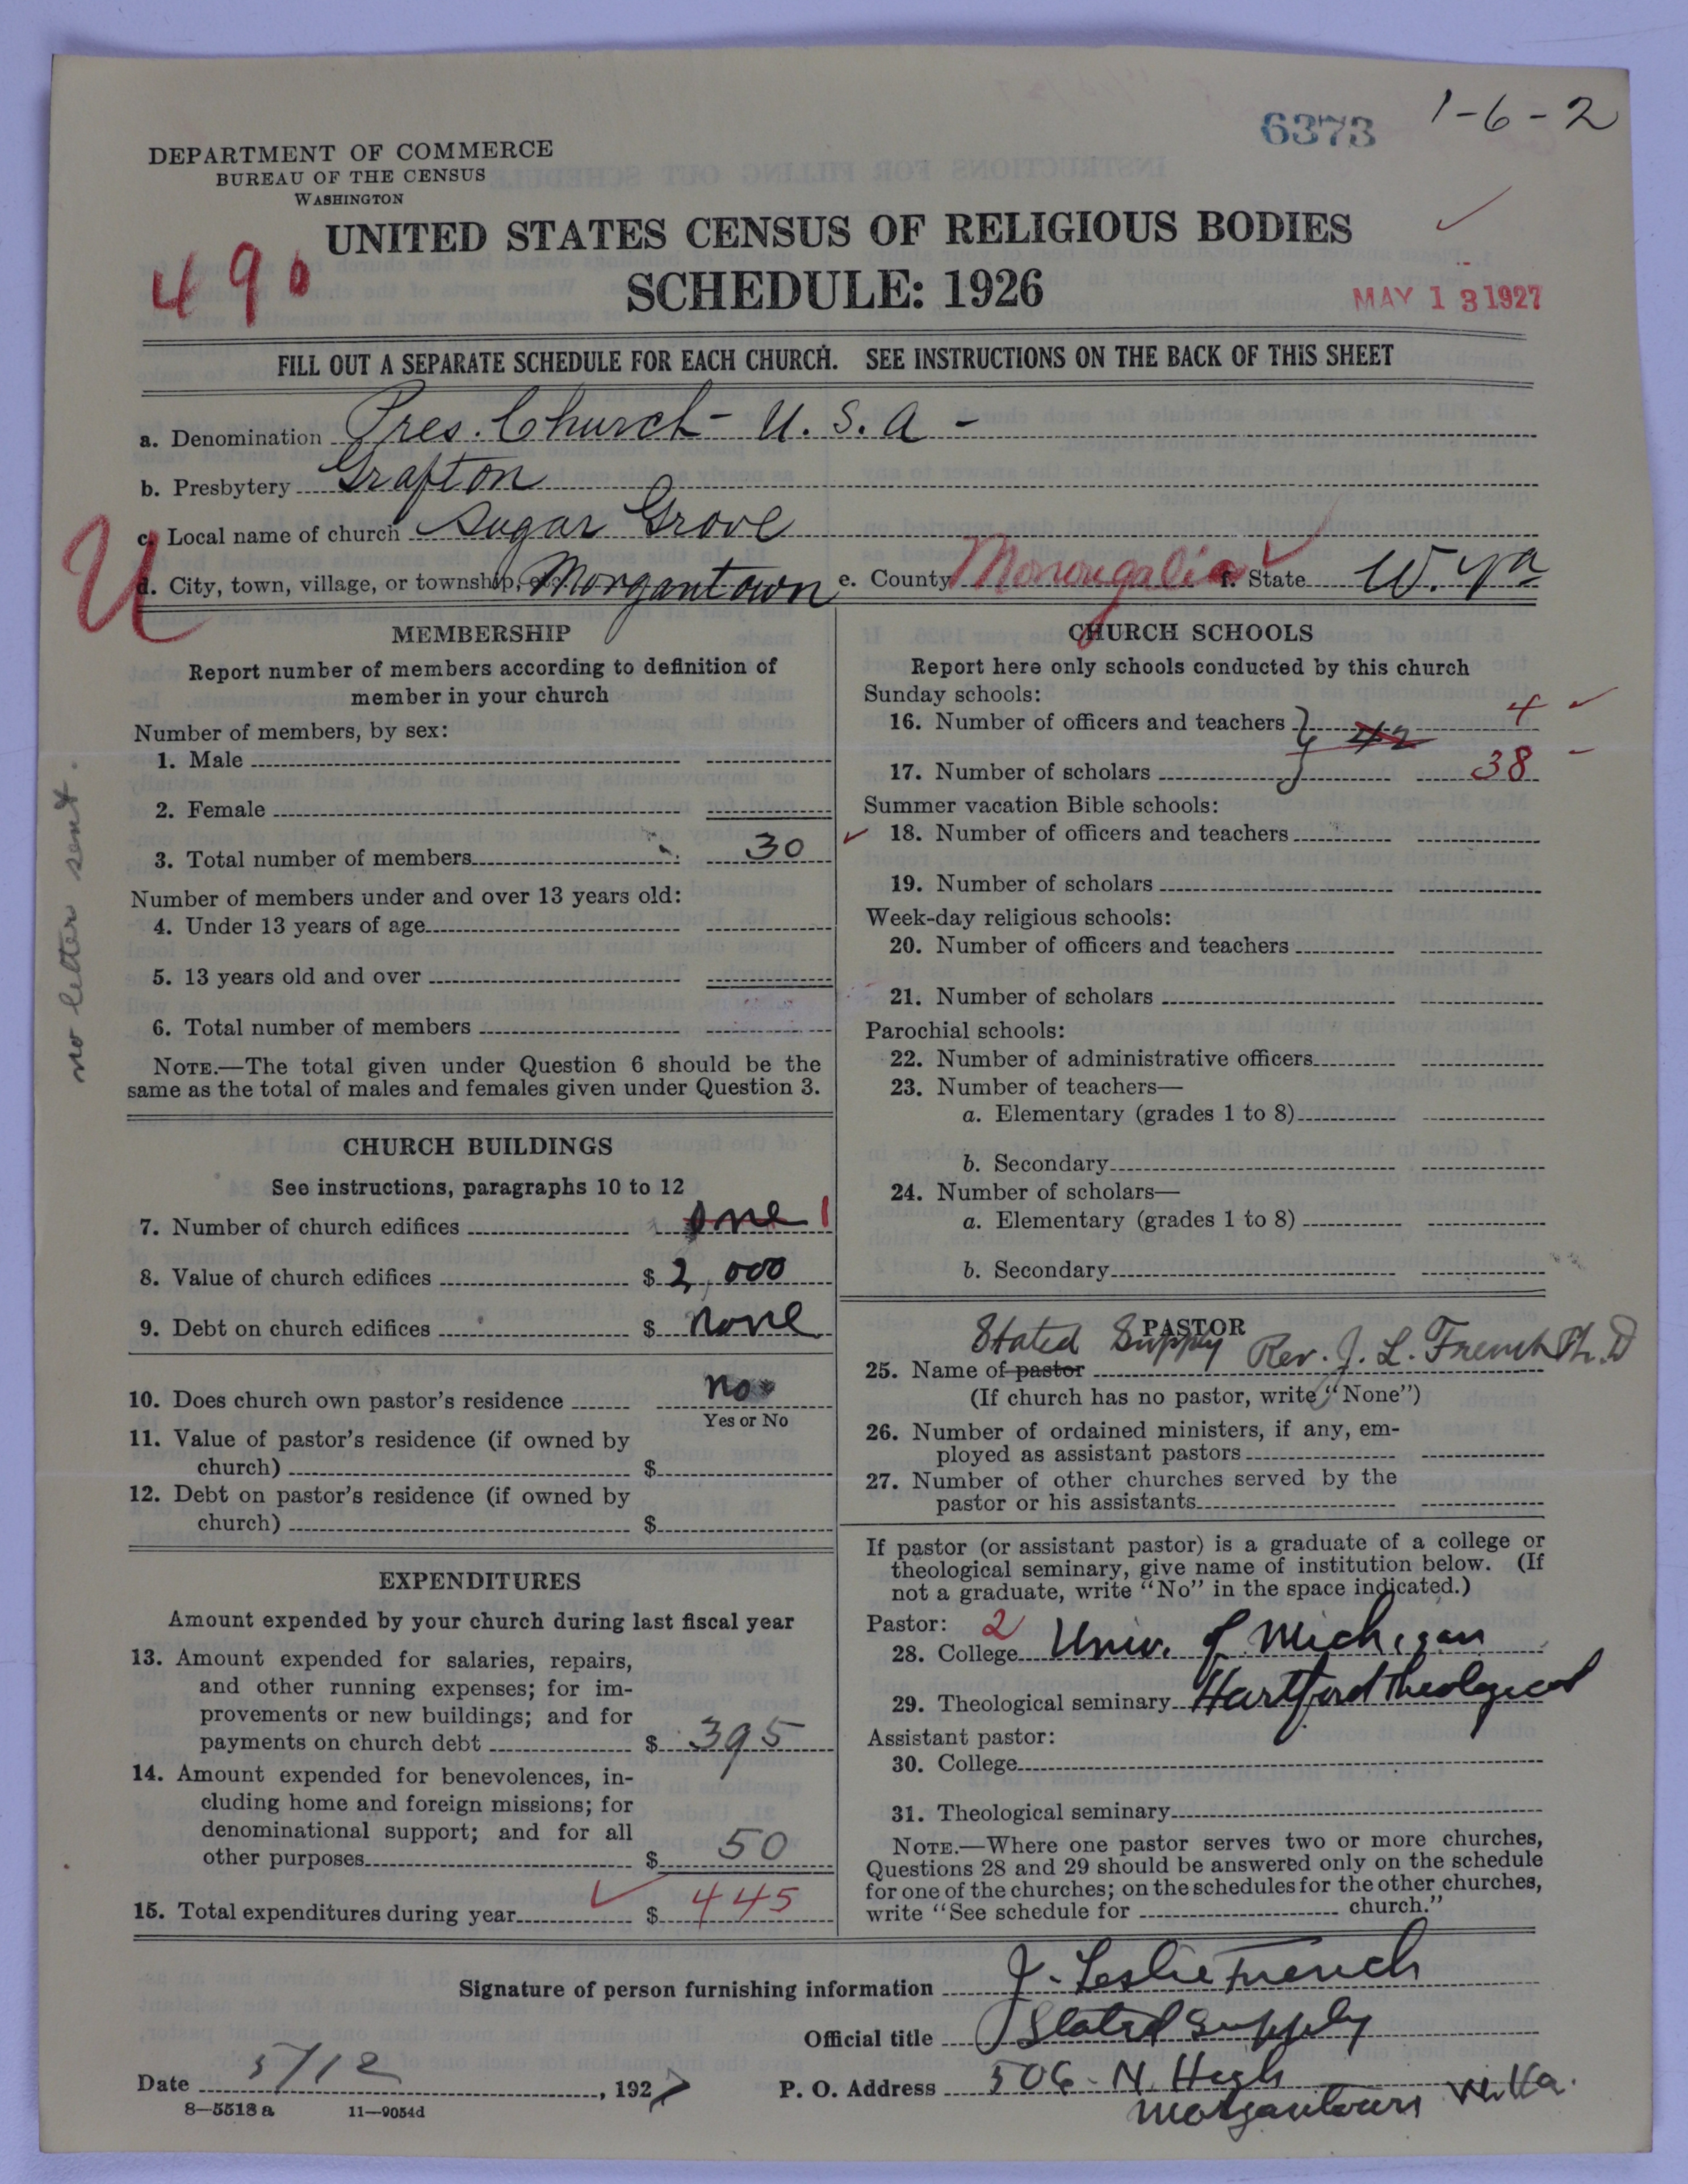 6373 1-6-2
DEPARTMENT OF COMMERCE
BUREAU OF THE CENSUS
WASHINGTON
UNITED STATES CENSUS OF RELIGIOUS BODIES
490
SCHEDULE: 1926
MAY 13 1927
FILL OUT A SEPARATE SCHEDULE FOR EACH CHURCH. SEE INSTRUCTIONS ON THE BACK OF THIS SHEET
a. Denomination Pres. Church - U. S. A -
b. Presbytery Grafton
c. Local name of church Sugar Grove
U
d. City, town, village, or township, etc. Morgantown e. County Monongalia f. State W. Va
no letter sent.
MEMBERSHIP
Report number of members according to definition of
member in your church
Number of members, by sex:
1. Male
2. Female
3. Total number of members 30
Number of members under and over 13 years old:
4. Under 13 years of age
5. 13 years old and over
6. Total number of members
NOTE.—The total given under Question 6 should be the
same as the total of males and females given under Question 3.
CHURCH BUILDINGS
See instructions, paragraphs 10 to 12
7. Number of church edifices one 1
8. Value of church edifices $ 2,000
9. Debt on church edifices $ none
10. Does church own pastor's residence no
Yes or No
11. Value of pastor's residence (if owned by
church) $
12. Debt on pastor's residence (if owned by
church) $
EXPENDITURES
Amount expended by your church during last fiscal year
13. Amount expended for salaries, repairs,
and other running expenses; for im-
provements or new buildings; and for
payments on church debt $ 395
14. Amount expended for benevolences, in-
cluding home and foreign missions; for
denominational support; and for all
other purposes $ 50
15. Total expenditures during year $ 445
CHURCH SCHOOLS
Report here only schools conducted by this church
Sunday schools:
16. Number of officers and teachers } 42 4
17. Number of scholars 38
Summer vacation Bible schools:
18. Number of officers and teachers
19. Number of scholars
Week-day religious schools:
20. Number of officers and teachers
21. Number of scholars
Parochial schools:
22. Number of administrative officers
23. Number of teachers—
a. Elementary (grades 1 to 8)
b. Secondary
24. Number of scholars—
a. Elementary (grades 1 to 8)
b. Secondary
PASTOR
Stated Supply
25. Name of pastor Rev. J. L. French Ph. D
(If church has no pastor, write "None")
26. Number of ordained ministers, if any, em-
ployed as assistant pastors
27. Number of other churches served by the
pastor or his assistants
If pastor (or assistant pastor) is a graduate of a college or
theological seminary, give name of institution below. (If
not a graduate, write "No" in the space indicated.)
Pastor: 2
28. College Univ. of Michigan
29. Theological seminary Hartford Theological
Assistant pastor:
30. College
31. Theological seminary
NOTE.—Where one pastor serves two or more churches,
Questions 28 and 29 should be answered only on the schedule
for one of the churches; on the schedules for the other churches,
write "See schedule for church."
Signature of person furnishing information J. Leslie French
Official title Stated Supply
Date 5/12, 1927 P. O. Address 506 N. High
Morgantown W. Va.
8—5518 a 11—9054d